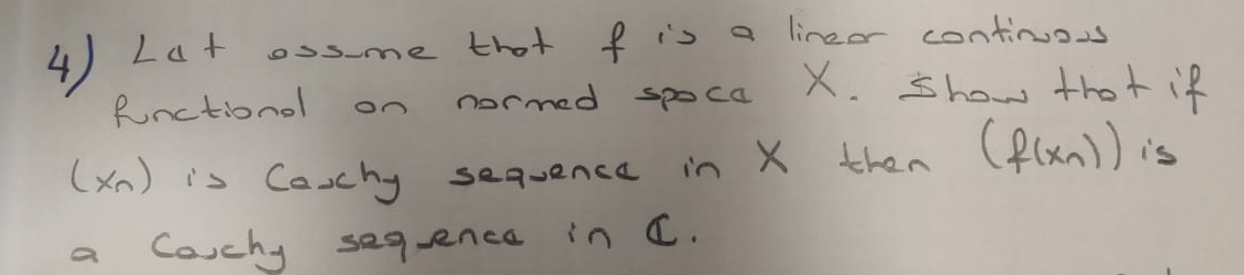 4) Let assume that f is a linear continuous
functional on normed space X. Show that if
(xn) is Cauchy sequence in X then (f(xn)) is
a Cauchy sequence in ℂ.